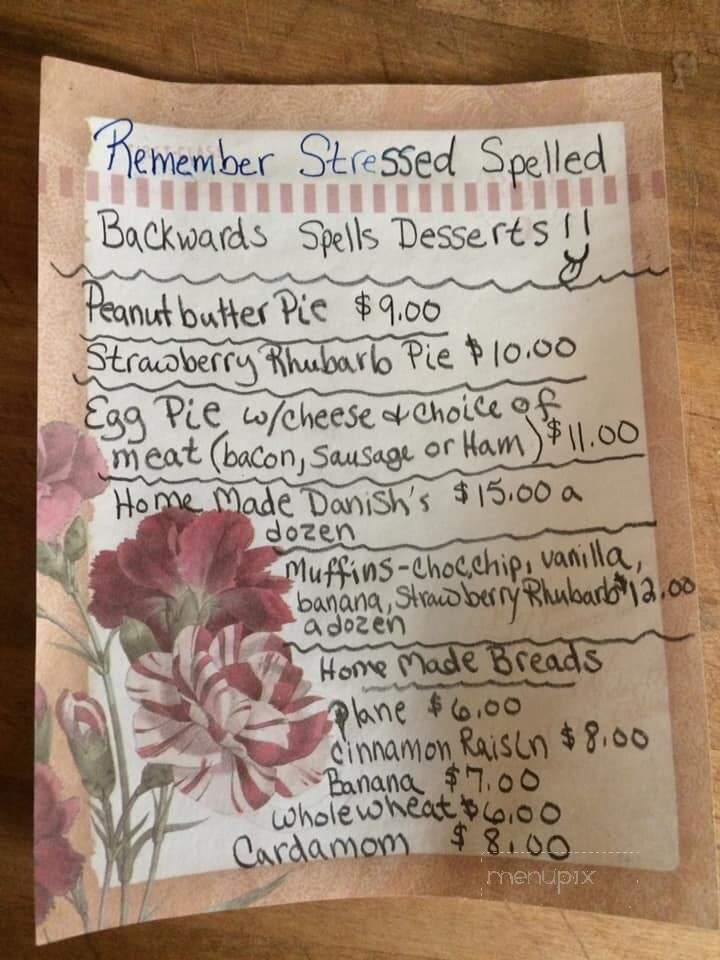 Remember Stressed Spelled
Backwards Spells Desserts!!
Peanutbutter Pie $9.00
Strawberry Rhubarb Pie $10.00
Egg Pie w/cheese & choice of
meat (bacon, sausage or Ham) $11.00
Home Made Danish's $15.00 a
dozen
Muffins-choc.chip, vanilla,
banana, Strawberry Rhubarb $12.00
a dozen
Home Made Breads
plane $6.00
cinnamon Raisin $8.00
Banana $7.00
whole wheat $6.00
Cardamom $8.00
menupix